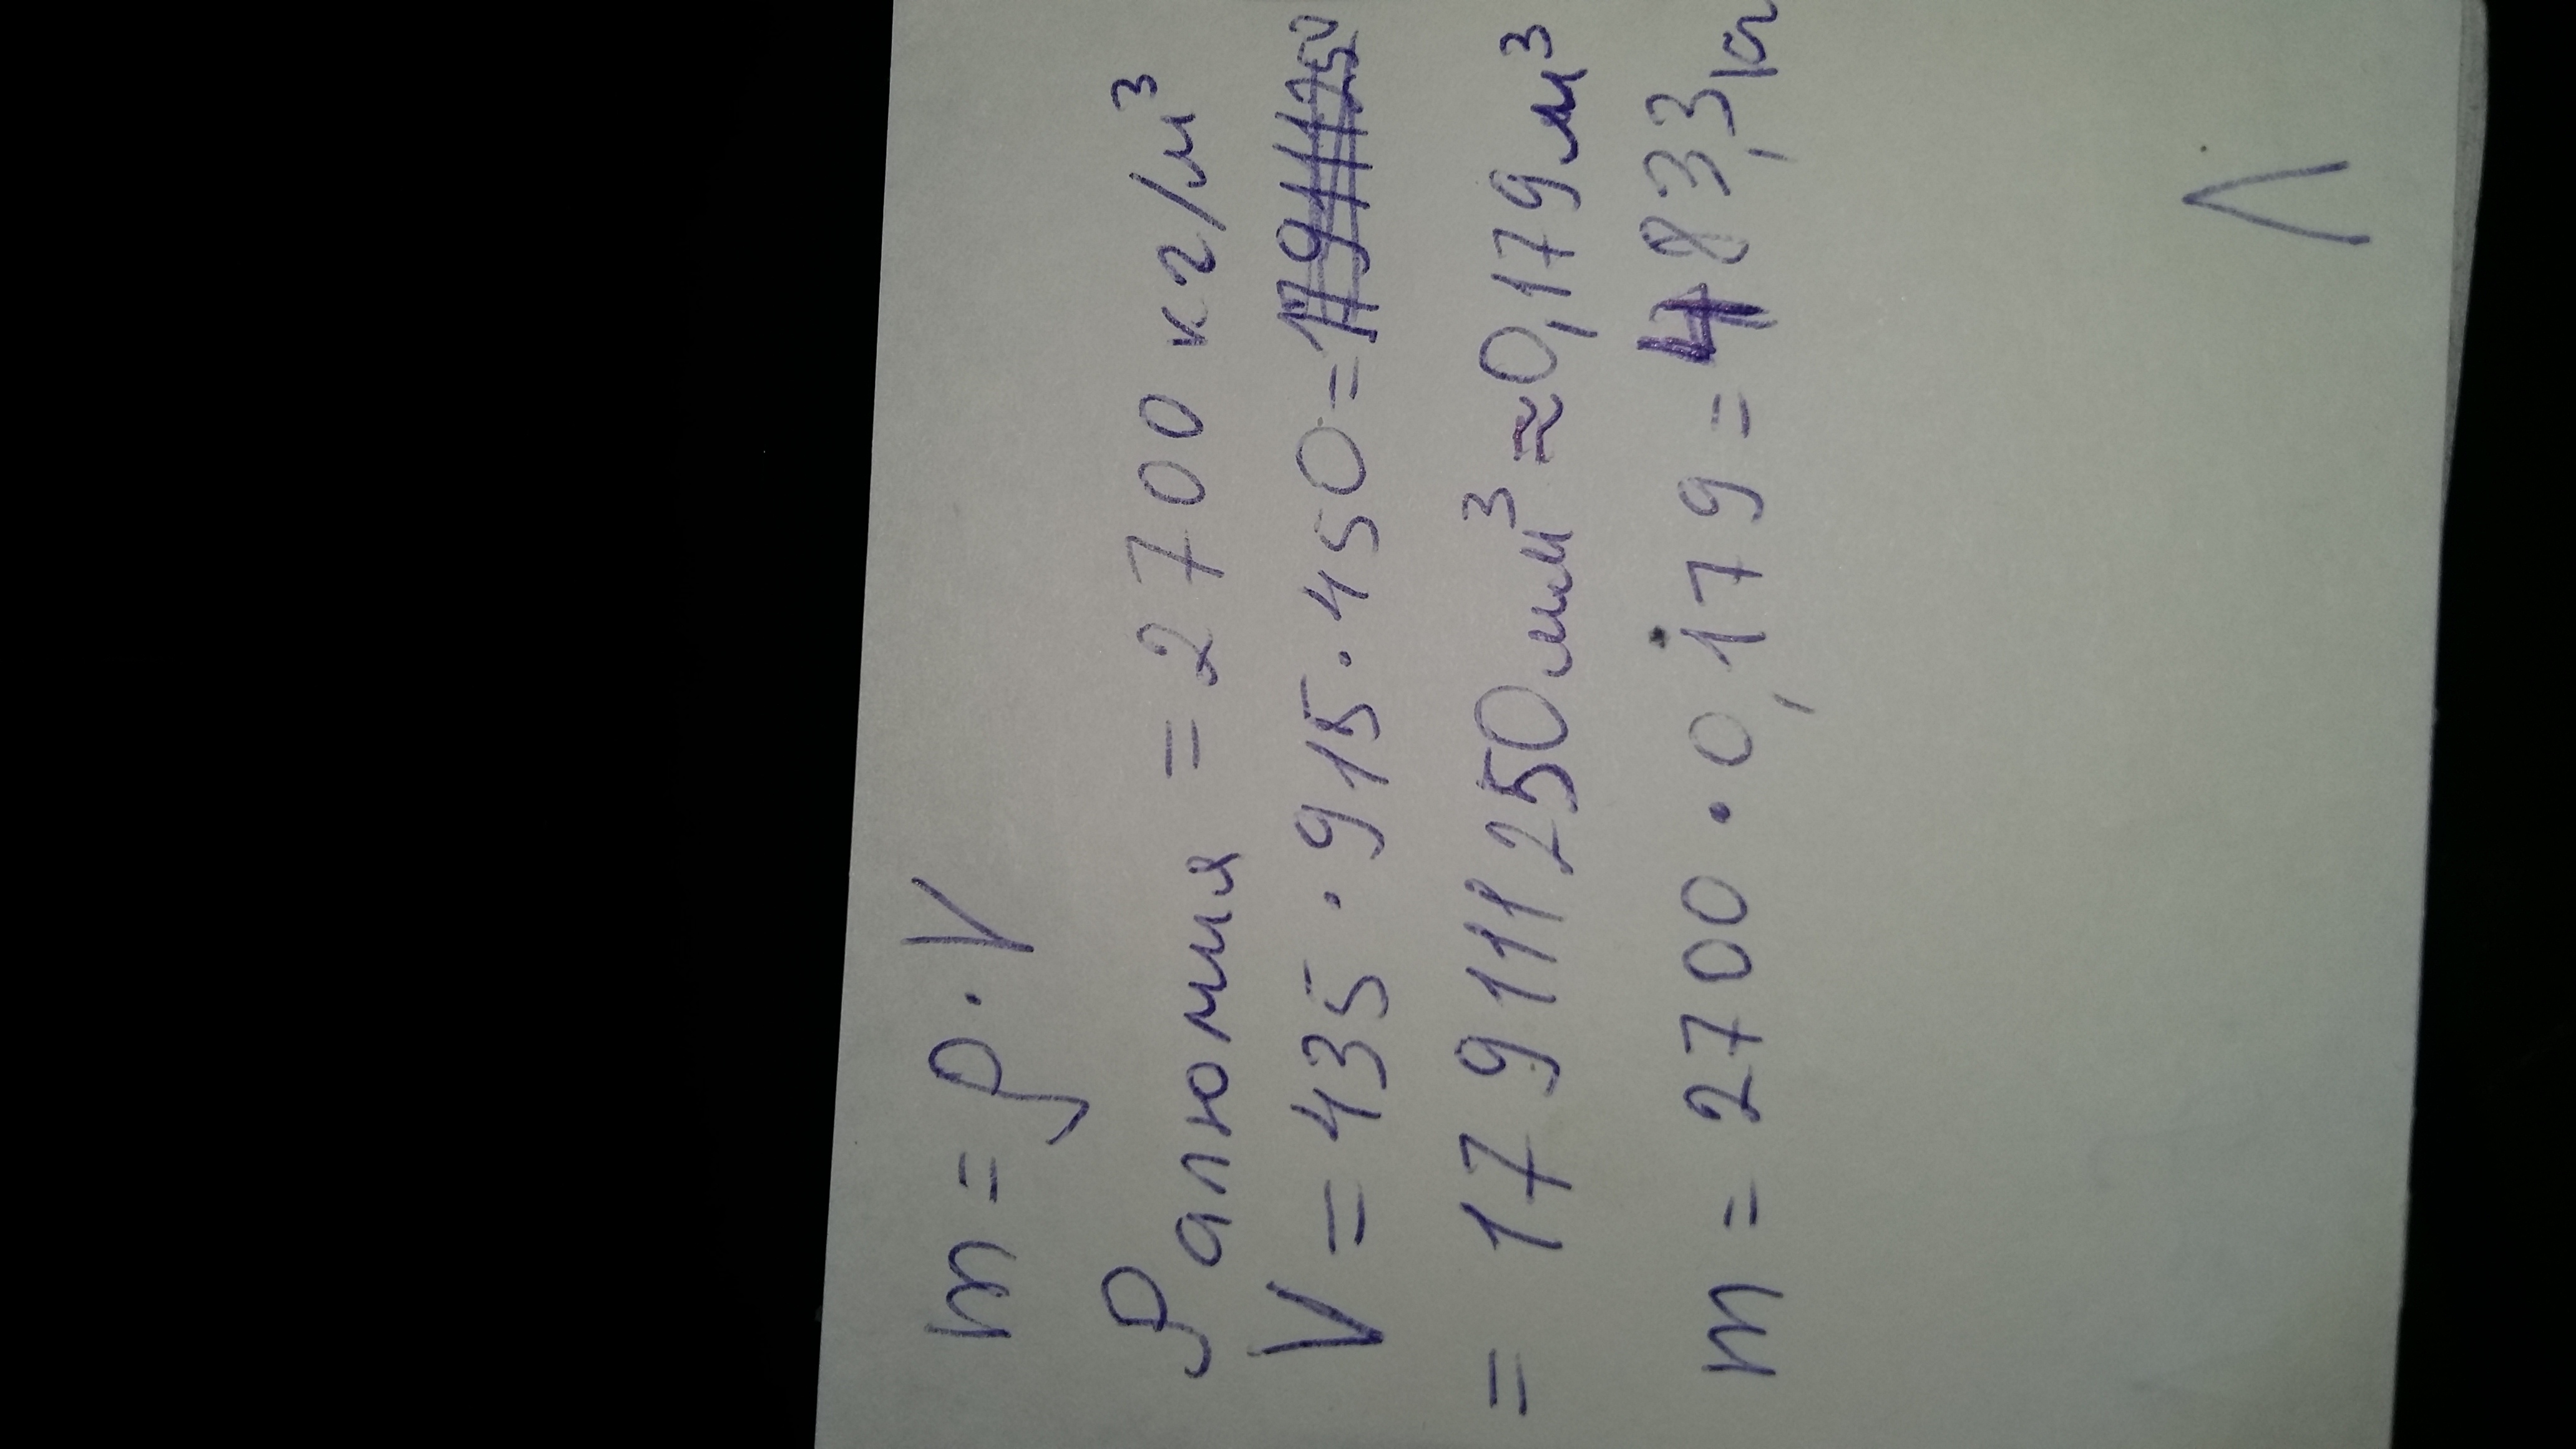 m = ρ · V
ρ алюмия = 2700 кг/м³
V = 435 · 915 · 450 =
= 179111250 мм³ ≈ 0,179 м³
m = 2700 · 0,179 = 483,3 кг